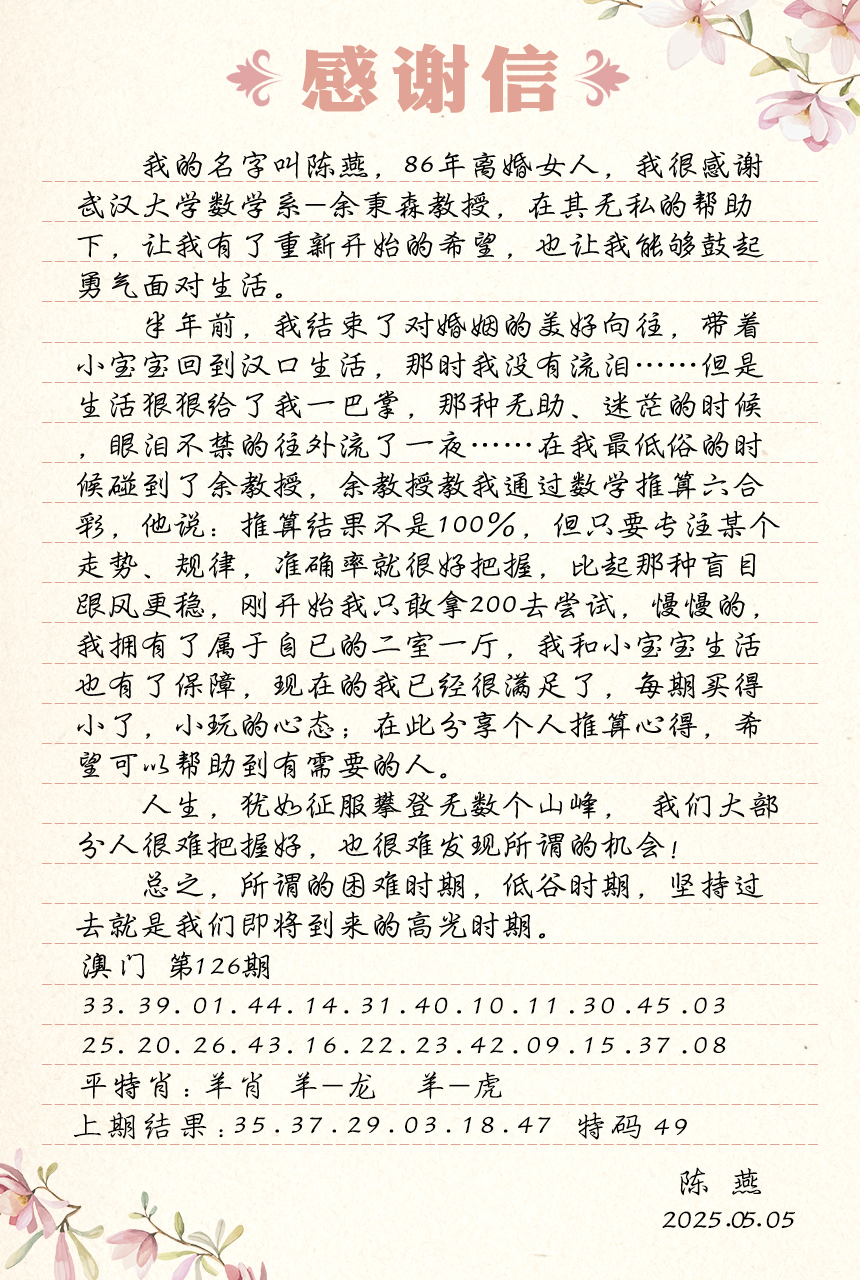 感谢信
我的名字叫陈燕，86年离婚女人，我很感谢
武汉大学数学系—余秉森教授，在其无私的帮助
下，让我有了重新开始的希望，也让我能够鼓起
勇气面对生活。
半年前，我结束了对婚姻的美好向往，带着
小宝宝回到汉口生活，那时我没有流泪……但是
生活狠狠给了我一巴掌，那种无助、迷茫的时候
，眼泪不禁的往外流了一夜……在我最低俗的时
候碰到了余教授，余教授教我通过数学推算六合
彩，他说：推算结果不是100%，但只要专注某个
走势、规律，准确率就很好把握，比起那种盲目
跟风更稳，刚开始我只敢拿200去尝试，慢慢的，
我拥有了属于自已的二室一厅，我和小宝宝生活
也有了保障，现在的我已经很满足了，每期买得
小了，小玩的心态；在此分享个人推算心得，希
望可以帮助到有需要的人。
人生，犹如征服攀登无数个山峰， 我们大部
分人很难把握好，也很难发现所谓的机会！
总之，所谓的困难时期，低谷时期，坚持过
去就是我们即将到来的高光时期。
澳门 第126期
33.39.01.44.14.31.40.10.11.30.45.03
25.20.26.43.16.22.23.42.09.15.37.08
平特肖：羊肖 羊—龙 羊—虎
上期结果：35.37.29.03.18.47 特码49
陈 燕
2025.05.05